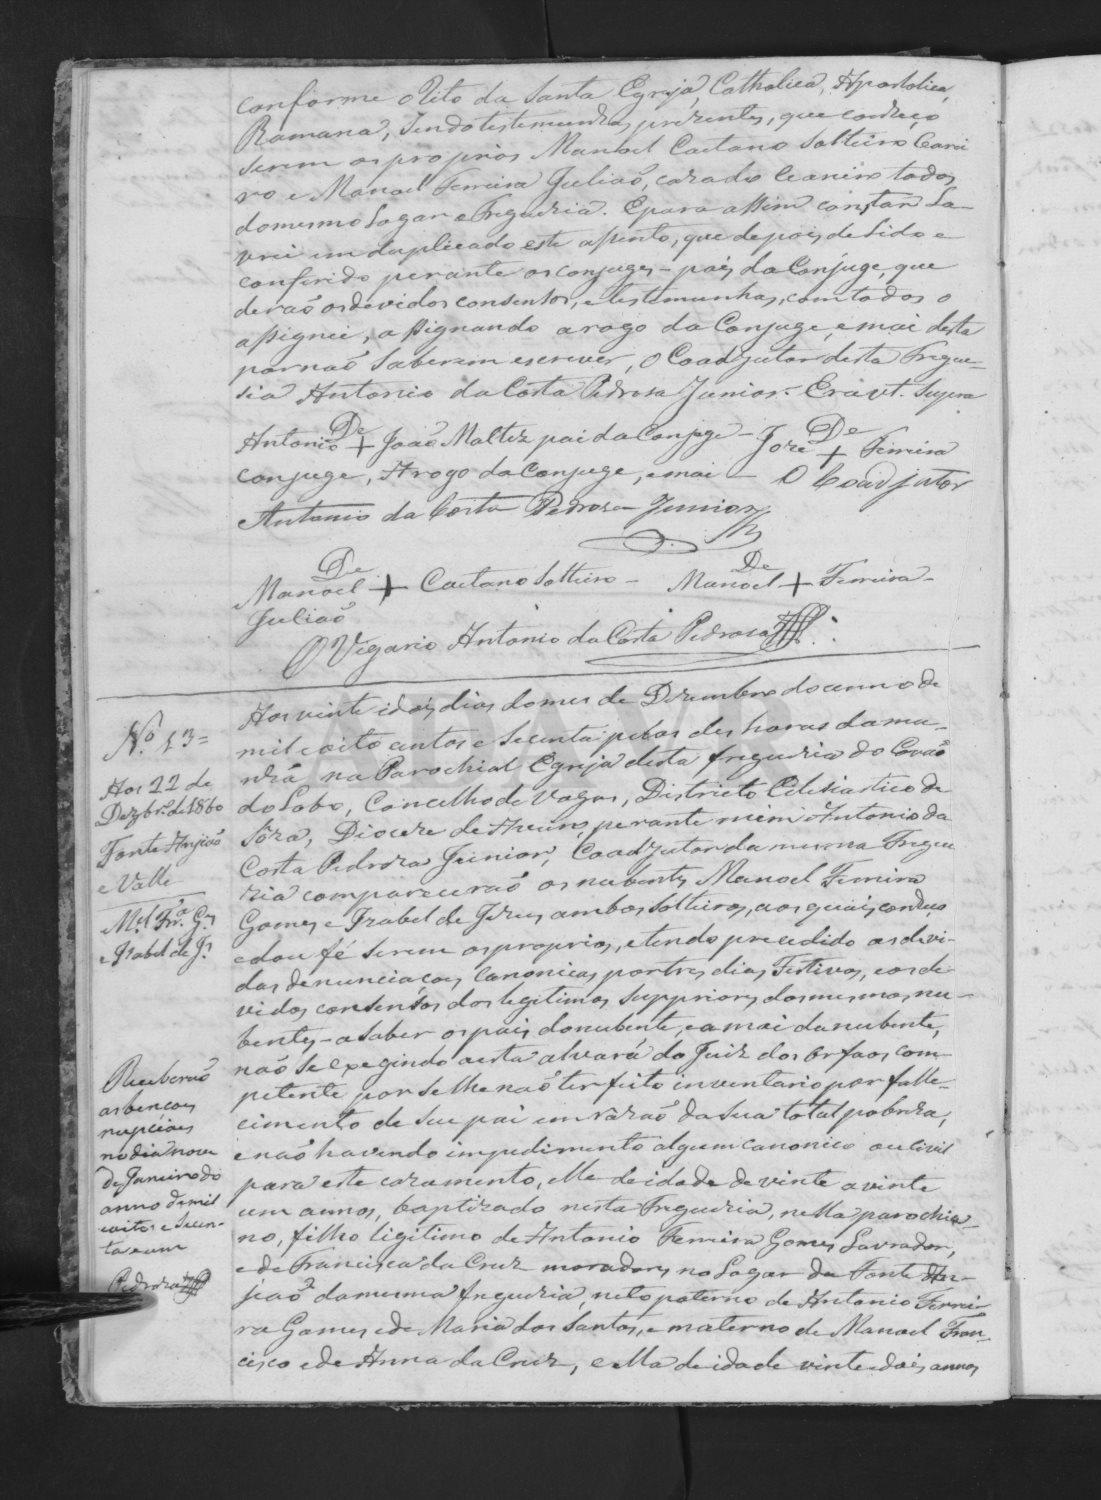 conforme o Rito da Santa Egreja Catholica, Apostolica,
Romana, sendo testemunhas prezentes, que conheço
serem os proprios Manoel Caetano solteiro
ro e Manoel Ferreira Julião, cazado todos
do mesmo Lugar e Freguezia. E para assim constar La-
vrei em duplicado este assento, que depois de lido e
conferido perante os conjuges - pais da Conjuge, que
derão os devidos consensos, e testemunhas, com todos o
assignei, assignando a rogo da Conjuge, e mai desta
por não saberem escrever, o Coadjutor desta Fregue-
sia Antonio da Costa Pedrosa Junior. Era ut supra
De De
Antonio + João Maltez pai da Conjuge - José + Ferreira
conjuge, A rogo da Conjuge, e mai - O Coadjutor
Antonio da Costa Pedrosa Junior
De De
Manoel + Caetano solteiro - Manoel + Ferreira -
Julião
O Vigario Antonio da Costa Pedrosa
N.º 53=
Aos 22 de
Dezbr.º de 1860
Fonte Anjião
e Valle
M.el Frr.ª G.es
e Izabel de J.s
Aos vinte e dois dias do mes de Dezembro do anno de
mil e oito centos e secenta pelas des horas da ma-
nhã na Parochial Egreja desta freguezia do Covão
do Lobo, Concelho de Vagos, Districto Eclesiastico de
Sôza, Diocese de Aveiro, perante mim Antonio da
Costa Pedroza Junior, Coadjutor da mesma Fregue
zia comparecerão os nubentes Manoel Ferreira
Gomes e Izabel de Jezus ambos solteiros, aos quais conheço
e dou fé serem os proprios, e tendo precedido as devi-
das denunciaçoes canonicas por tres dias Festivos, e os de-
vidos consensos dos legitimos suppriores dos mesmos nu-
bentes - a saber os pais do nubente, e a mai da nubente,
não se exegindo a esta alvará do Juiz dos orfaos com-
petente por se lhe não ter feito inventario por falle-
cimento de seu pai em razão da sua total pobreza,
e não havendo impedimento algum canonico ou civil
para este cazamento, elle de idade de vinte a vinte
um annos, baptizado nesta Freguezia, nella parochia-
no, filho ligitimo de Antonio Ferreira Gomes Lavrador,
e de Francisca da Cruz moradores no Lugar da Fonte An-
jião da mesma freguezia, neto paterno de Antonio Ferrei-
ra Gomes e de Maria dos Santos, e materno de Manoel Fran-
cisco e de Anna da Cruz, e ella de idade vinte e dois annos
Receberão
as bençoes
nupciaes
no dia nove
de Janeiro do
anno de mil
oitos e secen-
ta e um
Pedroza